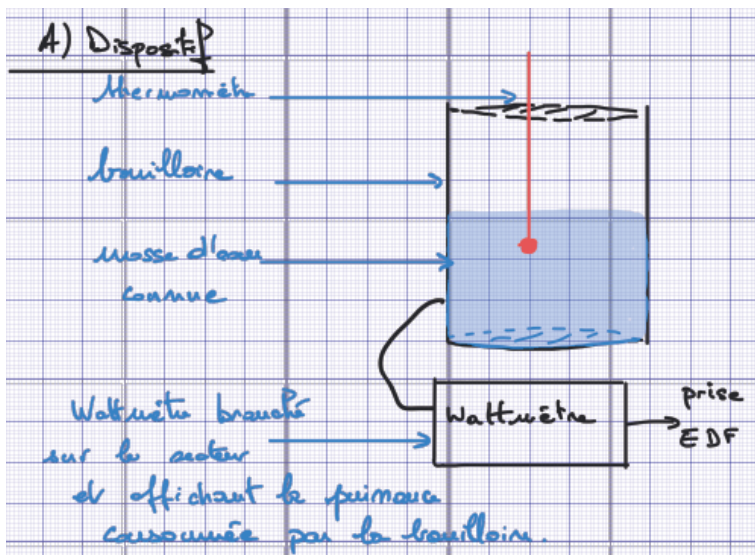 A) Dispositif
thermomètre
bouilloire
masse d'eau
connue
Wattmètre branché
sur le secteur
et affichant la puissance
consommée par la bouilloire.
Wattmètre
prise
EDF